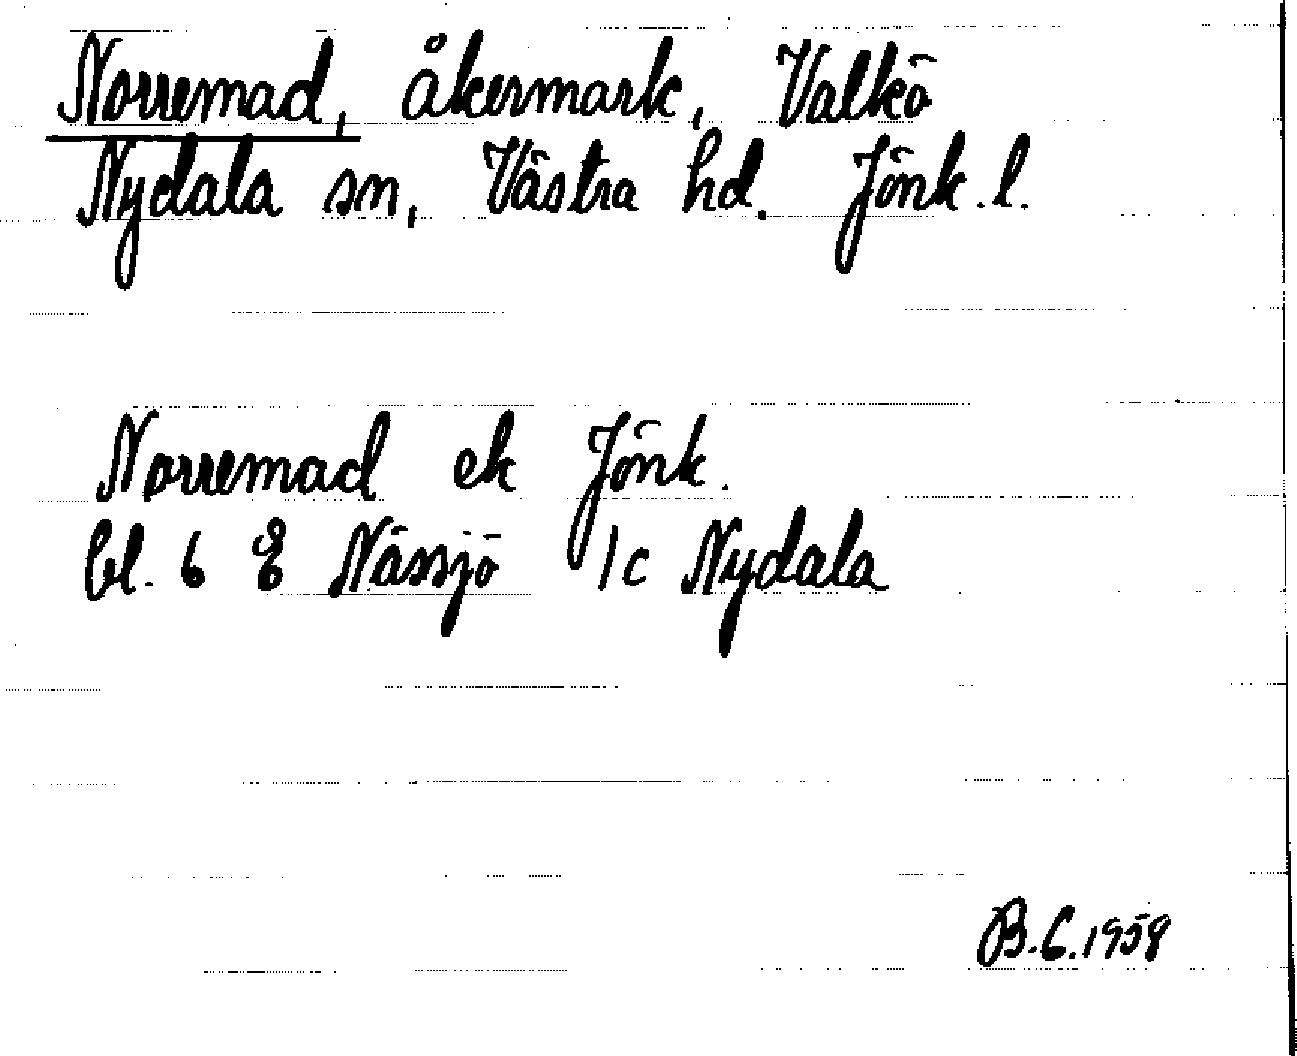 Norremad, åkermark, Valkö
Nydala sn, Västra hd. Jönk. l.
Norremad ek Jönk.
bl. 6 E Nässjö 1c Nydala
B.C. 1958